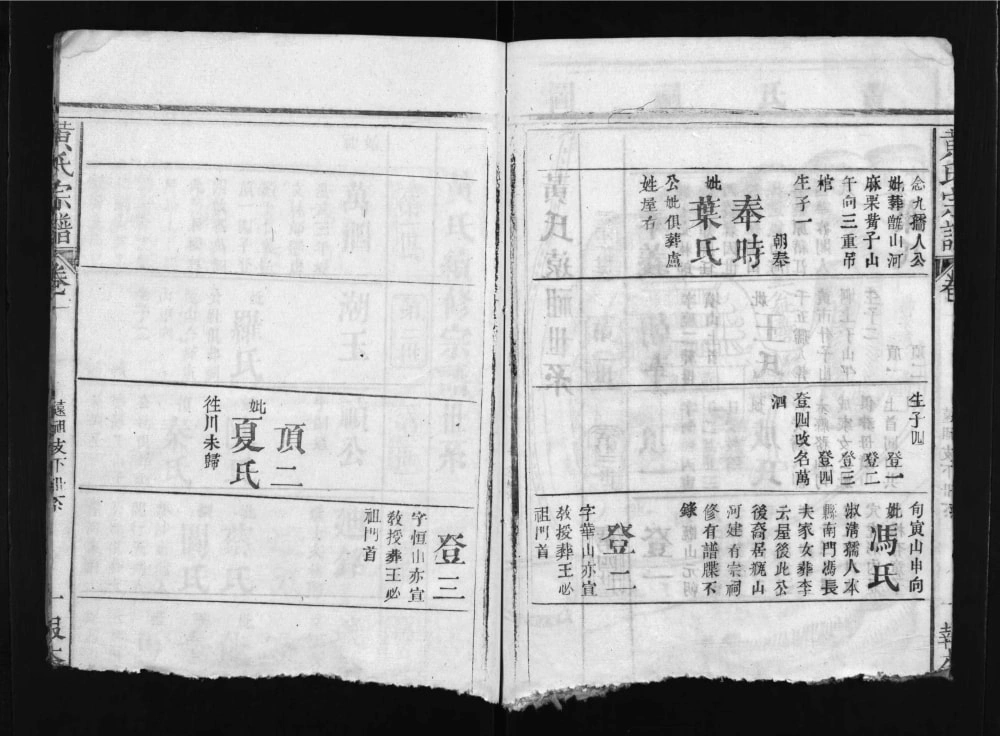 念九孺人公
妣葬甑山河
麻栗凳子山
午向三重吊
棺
生子一
朝奉
奉時
妣
葉氏
公妣俱葬盧
姓屋右
生子四
登一
登二
登三
登四
登四改名萬
泗
旬寅山申向
妣
馮氏
淑清孺人本
縣南門馮長
夫家女葬李
云屋後此公
後裔居硯山
河建有宗祠
修有譜牒不
錄
登二
字華山亦宣
教授葬王必
祖門首
黃氏宗譜
卷
黃氏宗譜
卷一
遠祖支下世系
一
頂二
妣
夏氏
徃川未歸
登三
字恒山亦宣
教授葬王必
祖門首